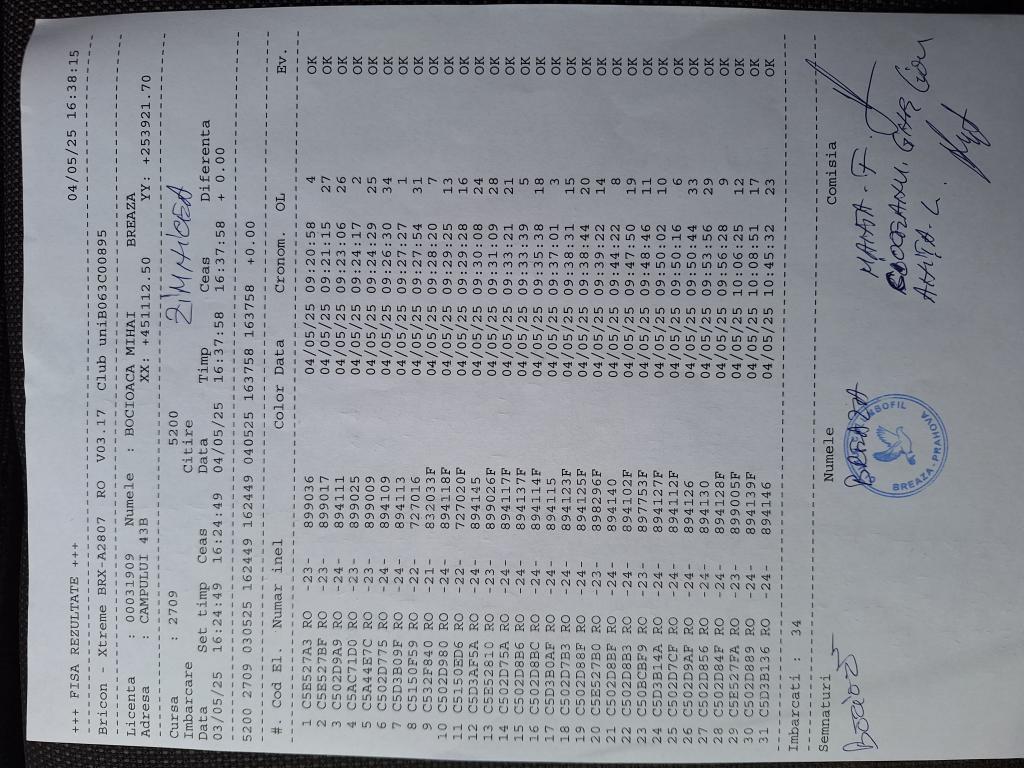 +++ FISA REZULTATE +++ 04/05/25 16:38:15
Bricon - Xtreme BRX-A2807 RO V03.17 Club uniB063C00895
Licenta : 00031909 Numele : BOCIOACA MIHAI BREAZA
Adresa : CAMPULUI 43B XX: +451112.50 YY: +253921.70
Cursa : 2709 5200 ZIMNICEA
Imbarcare Citire
Data Set timp Ceas Data Timp Ceas Diferenta
03/05/25 16:24:49 16:24:49 04/05/25 16:37:58 16:37:58 + 0.00
5200 2709 030525 162449 162449 040525 163758 163758 +0.00
#. Cod El. Numar inel Color Data Cronom. OL Ev.
1 C5E527A3 RO -23- 899036 04/05/25 09:20:58 4 OK
2 C5E527BF RO -23- 899017 04/05/25 09:21:15 27 OK
3 C502D9A9 RO -24- 894111 04/05/25 09:23:06 26 OK
4 C5AC71D0 RO -23- 899025 04/05/25 09:24:17 2 OK
5 C5A44E7C RO -23- 899009 04/05/25 09:24:29 25 OK
6 C502D775 RO -24- 894109 04/05/25 09:26:30 34 OK
7 C5D3B09F RO -24- 894113 04/05/25 09:27:27 1 OK
8 C5150F59 RO -22- 727016 04/05/25 09:27:54 31 OK
9 C532F840 RO -21- 832033F 04/05/25 09:28:20 7 OK
10 C502D980 RO -24- 894118F 04/05/25 09:29:25 13 OK
11 C5150ED6 RO -22- 727020F 04/05/25 09:29:28 16 OK
12 C5D3AF5A RO -24- 894145 04/05/25 09:30:08 24 OK
13 C5E52810 RO -23- 899026F 04/05/25 09:31:09 28 OK
14 C502D75A RO -24- 894117F 04/05/25 09:33:21 21 OK
15 C502D8E6 RO -24- 894137F 04/05/25 09:33:39 5 OK
16 C502D8BC RO -24- 894114F 04/05/25 09:35:38 18 OK
17 C5D3B0AF RO -24- 894115 04/05/25 09:37:01 3 OK
18 C502D7B3 RO -24- 894123F 04/05/25 09:38:31 15 OK
19 C502D88F RO -24- 894125F 04/05/25 09:38:44 20 OK
20 C5E527B0 RO -23- 898296F 04/05/25 09:39:22 14 OK
21 C502D8BF RO -24- 894140 04/05/25 09:44:22 8 OK
22 C502D8B3 RO -24- 894102F 04/05/25 09:47:50 19 OK
23 C50BCBF9 RO -23- 897753F 04/05/25 09:48:46 11 OK
24 C5D3B14A RO -24- 894127F 04/05/25 09:50:02 10 OK
25 C502D7CF RO -24- 894112F 04/05/25 09:50:16 6 OK
26 C502D9AF RO -24- 894126 04/05/25 09:50:44 33 OK
27 C502D856 RO -24- 894130 04/05/25 09:53:56 29 OK
28 C502D84F RO -24- 894128F 04/05/25 09:56:28 9 OK
29 C5E527FA RO -23- 899005F 04/05/25 10:06:25 12 OK
30 C502D889 RO -24- 894139F 04/05/25 10:08:51 17 OK
31 C5D3B136 RO -24- 894146 04/05/25 10:45:32 23 OK
Imbarcati : 34
Semnaturi Numele Comisia
BREAZA
BREAZA-PRAHOVA